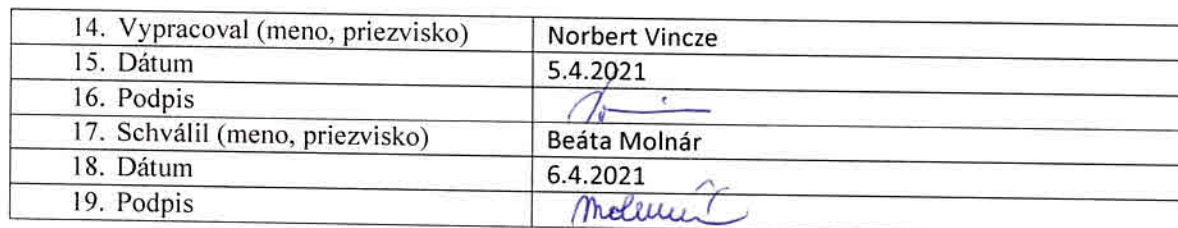 14. Vypracoval (meno, priezvisko) Norbert Vincze
15. Dátum 5.4.2021
16. Podpis
17. Schválil (meno, priezvisko) Beáta Molnár
18. Dátum 6.4.2021
19. Podpis